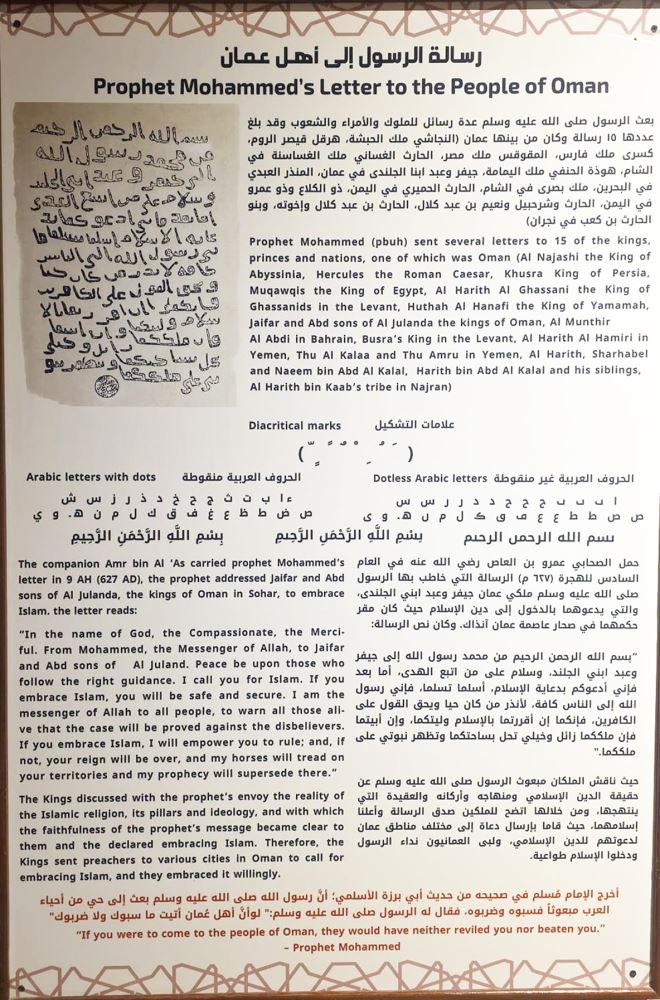 رسالة الرسول إلى أهل عمان
Prophet Mohammed's Letter to the People of Oman
بسم الله الرحمن الرحيم
من محمد رسول الله
بعث الرسول صلى الله عليه وسلم عدة رسائل للملوك والأمراء والشعوب وقد بلغ
عددها ١٥ رسالة وكان من بينها عمان (النجاشي ملك الحبشة، هرقل قيصر الروم،
كسرى ملك فارس، المقوقس ملك مصر، الحارث الغساني ملك الغساسنة في
الشام، هوذة الحنفي ملك اليمامة، جيفر وعبد ابنا الجلندى في عمان، المنذر العبدي
في البحرين، ملك بصرى في الشام، الحارث الحميري في اليمن، ذو الكلاع وذو عمرو
في اليمن، الحارث وشرحبيل ونعيم بن عبد كلال، الحارث بن عبد كلال وإخوته، وبنو
الحارث بن كعب في نجران)
Prophet Mohammed (pbuh) sent several letters to 15 of the kings,
princes and nations, one of which was Oman (Al Najashi the King of
Abyssinia, Hercules the Roman Caesar, Khusra King of Persia,
Muqawqis the King of Egypt, Al Harith Al Ghassani the King of
Ghassanids in the Levant, Huthah Al Hanafi the King of Yamamah,
Jaifar and Abd sons of Al Julanda the kings of Oman, Al Munthir
Al Abdi in Bahrain, Busra's King in the Levant, Al Harith Al Hamiri in
Yemen, Thu Al Kalaa and Thu Amru in Yemen, Al Harith, Sharhabel
and Naeem bin Abd Al Kalal, Harith bin Abd Al Kalal and his siblings,
Al Harith bin Kaab's tribe in Najran)
Diacritical marks علامات التشكيل
Arabic letters with dots الحروف العربية منقوطة
ء ا ب ت ث ج ح خ د ذ ر ز س ش
ص ض ط ظ ع غ ف ق ك ل م ن هـ و ي
Dotless Arabic letters الحروف العربية غير منقوطة
بِسْمِ اللَّهِ الرَّحْمَنِ الرَّحِيمِ
The companion Amr bin Al 'As carried prophet Mohammed's
letter in 9 AH (627 AD), the prophet addressed Jaifar and Abd
sons of Al Julanda, the kings of Oman in Sohar, to embrace
Islam. the letter reads:
"In the name of God, the Compassionate, the Merci-
ful. From Mohammed, the Messenger of Allah, to Jaifar
and Abd sons of Al Juland. Peace be upon those who
follow the right guidance. I call you for Islam. If you
embrace Islam, you will be safe and secure. I am the
messenger of Allah to all people, to warn all those ali-
ve that the case will be proved against the disbelievers.
If you embrace Islam, I will empower you to rule; and, if
not, your reign will be over, and my horses will tread on
your territories and my prophecy will supersede there."
The Kings discussed with the prophet's envoy the reality of
the Islamic religion, its pillars and ideology, and with which
the faithfulness of the prophet's message became clear to
them and the declared embracing Islam. Therefore, the
Kings sent preachers to various cities in Oman to call for
embracing Islam, and they embraced it willingly.
حمل الصحابي عمرو بن العاص رضي الله عنه في العام
السادس للهجرة (٦٢٧ م) الرسالة التي خاطب بها الرسول
صلى الله عليه وسلم ملكي عمان جيفر وعبد ابني الجلندى،
والتي يدعوهما بالدخول إلى دين الإسلام حيث كان مقر
حكمهما في صحار عاصمة عمان آنذاك. وكان نص الرسالة:
"بسم الله الرحمن الرحيم من محمد رسول الله إلى جيفر
وعبد ابني الجلند، وسلام على من اتبع الهدى، أما بعد
فإني أدعوكم بدعاية الإسلام، أسلما تسلما، فإني رسول
الله إلى الناس كافة، لأنذر من كان حيا ويحق القول على
الكافرين، فإنكما إن أقررتما بالإسلام وليتكما، وإن أبيتما
فإن ملككما زائل وخيلي تحل بساحتكما وتظهر نبوتي على
ملككما."
حيث ناقش الملكان مبعوث الرسول صلى الله عليه وسلم عن
حقيقة الدين الإسلامي ومنهاجه وأركانه والعقيدة التي
ينتهجها، ومن خلالها اتضح للملكين صدق الرسالة وأعلنا
إسلامهما، حيث قاما بإرسال دعاة إلى مختلف مناطق عمان
لدعوتهم للدين الإسلامي، ولبى العمانيون نداء الرسول
ودخلوا الإسلام طواعية.
أخرج الإمام مُسلم في صحيحه من حديث أبي برزة الأسلمي؛ أنَّ رسول الله صلى الله عليه وسلم بعث إلى حي من أحياء
العرب مبعوثاً فسبوه وضربوه، فقال له الرسول صلى الله عليه وسلم:" لوأنَّ أهل عُمان أتيت ما سبوك ولا ضربوك"
"If you were to come to the people of Oman, they would have neither reviled you nor beaten you."
– Prophet Mohammed